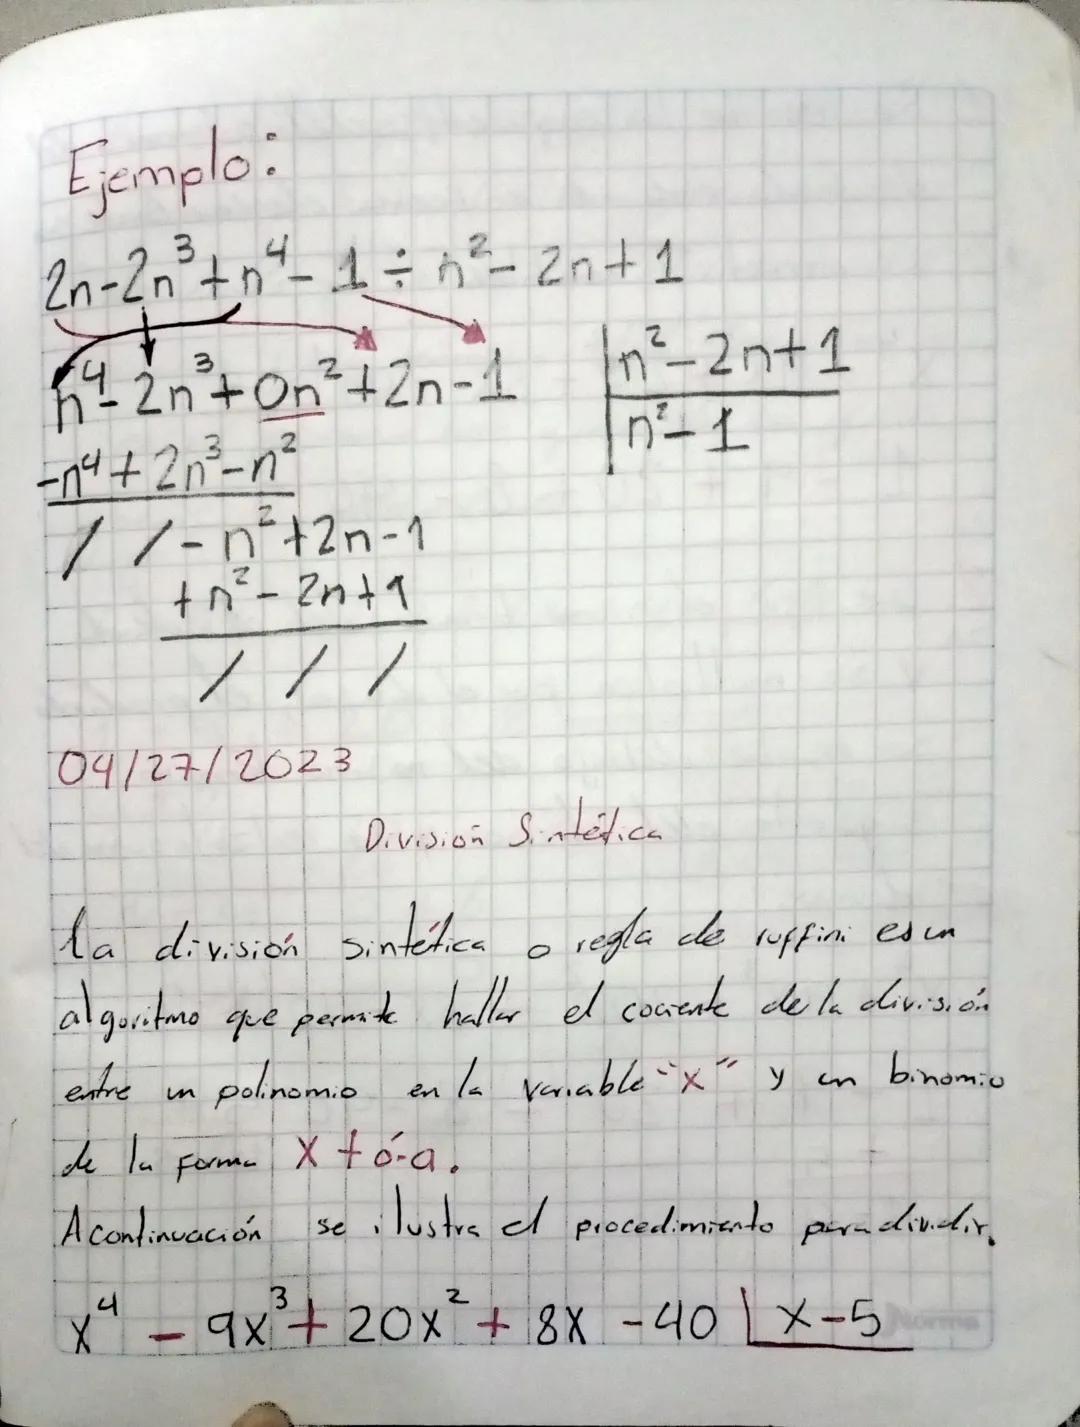 Ejemplo:
2n-2n³+n⁴-1÷n²-2n+1
n⁴-2n³+0n²+2n-1 |n²-2n+1
-n⁴+2n³-n² |n²-1
/ /-n²+2n-1
+n²-2n+1
/ / /
04/27/2023
División Sintética
la división sintética o regla de ruffini es un
algoritmo que permite hallar el cociente de la división
entre un polinomio en la variable "x" y un binomio
de la forma x + ó - a.
A continuación se ilustra el procedimiento para dividir.
x⁴ - 9x³ + 20x² + 8x - 40 | x-5
Norma